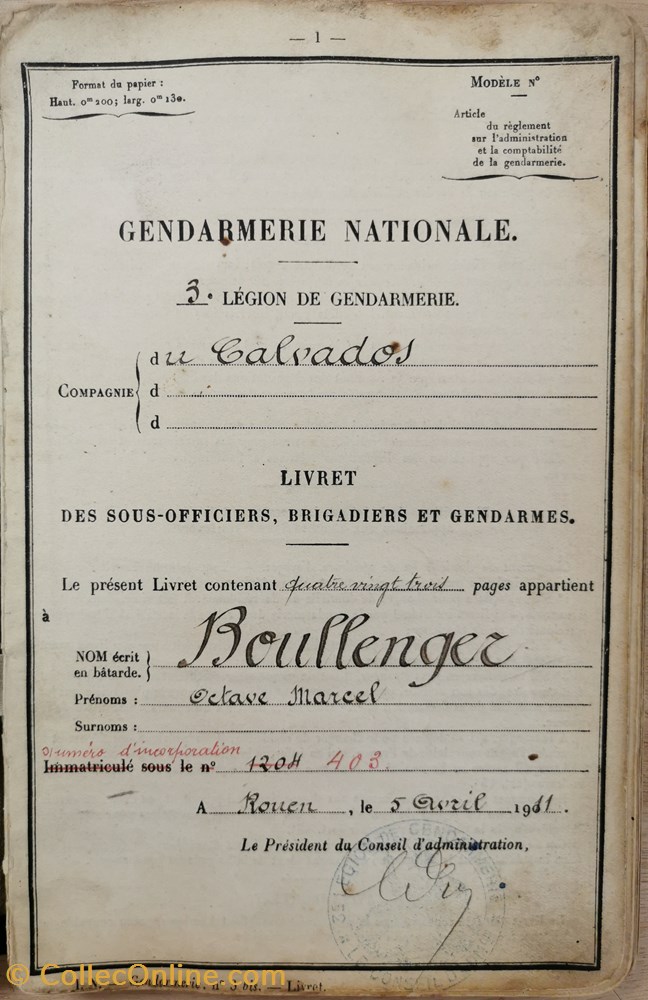 — 1 —
Format du papier :
Haut. 0m 200; larg. 0m 130.
MODÈLE N°
Article
du règlement
sur l'administration
et la comptabilité
de la gendarmerie.
GENDARMERIE NATIONALE.
3. LÉGION DE GENDARMERIE.
COMPAGNIE
du Calvados
d
d
LIVRET
DES SOUS-OFFICIERS, BRIGADIERS ET GENDARMES.
Le présent Livret contenant quatre vingt trois pages appartient
à
NOM écrit en bâtarde. Boullenger
Prénoms : Octave Marcel
Surnoms :
Numéro d'incorporation
Immatriculé sous le n° 1204 403.
A Rouen, le 5 Avril 1911.
Le Président du Conseil d'administration,
LÉGION DE GENDARMERIE
© CollecOnline.com
n° 5 bis. — Livret.